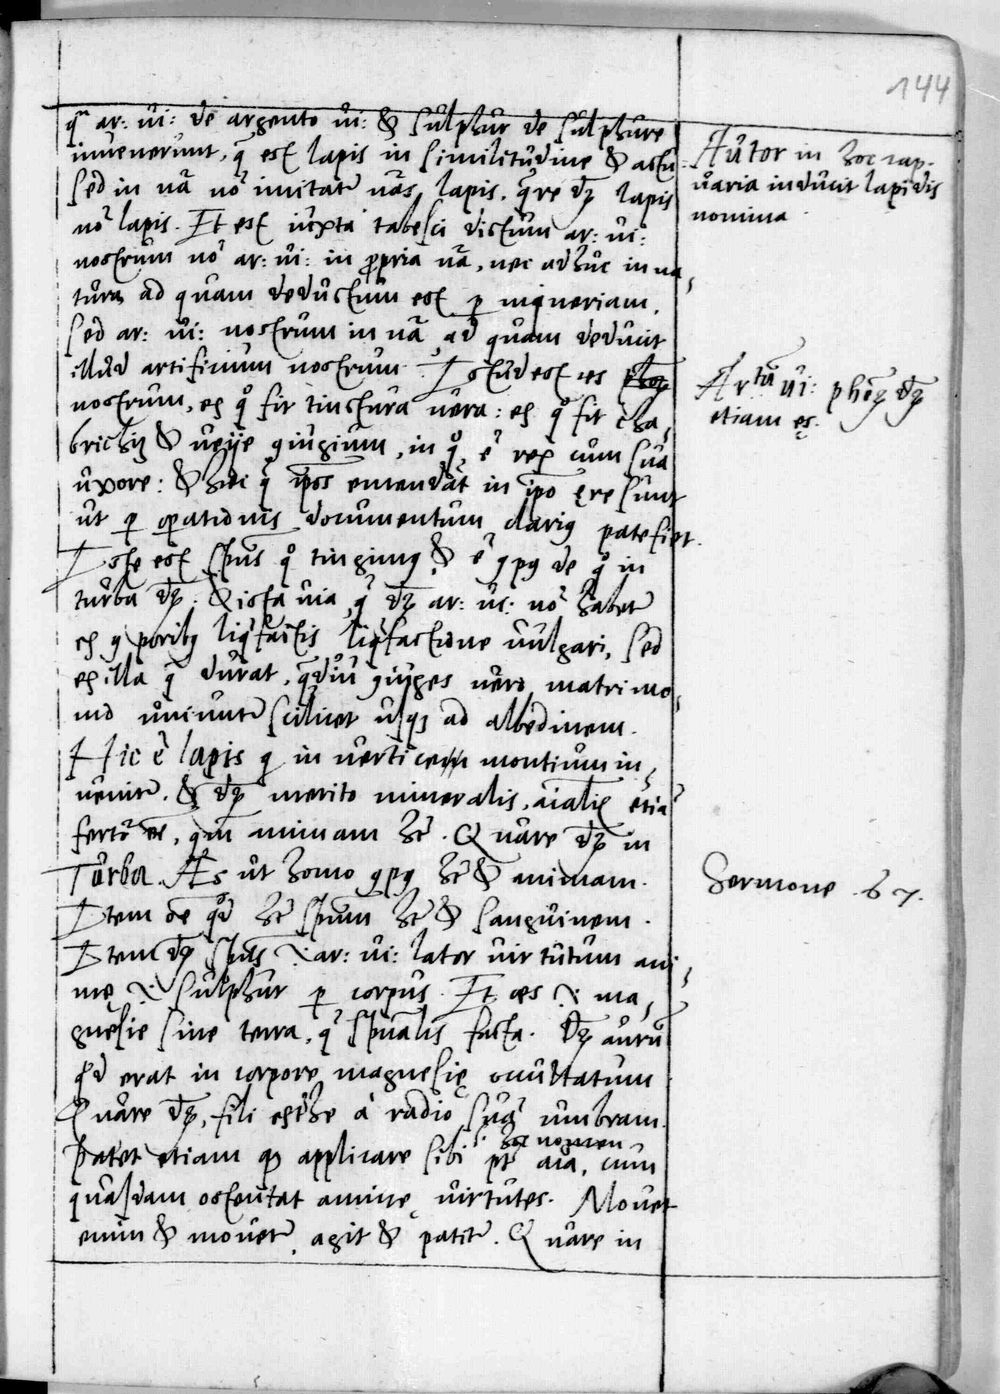 144
ar: vi: de argento vi: & sulphur de sulphure
invenerunt, q̃ est lapis in similitudine & actu
sed in nã nõ imitatr̃ nãs lapis, q̃re dr̃ lapis
nõ lapis. Et est iuxta tabesci dictum ar: vi:
nostrum nõ ar: vi: in propria nã, nec adhuc in na,
tura ad quam deductum est p mineriam,
sed ar: vi: nostrum in nã ad quam deducit
illud artificium nostrum. Istud est es
nostrum, ex qº fit tinctura vera: ex qº fit cha,
brichꝰ & ꝯiugium, in qº ẽ rex cum sua
uxore: & q̃ ipsos emendãt in ipo ęre sunt
ut p operationis documentum clariꝰ patefiet.
Iste est spũs qº tingimꝰ & ẽ de qº in
turba dr̃: & ista via q̃ dr̃ ar: vi: nõ habetr̃
ex liq̃factis liq̃factione vulgari, sed
ex illa q̃ durat, q̃diu ꝯiuges vero matrimo,
nio uniuntr̃ scilicet usqꝫ ad albedinem.
Hic ẽ lapis q in verticem montium in,
venitr̃. & dr̃ merito mineralis, aĩalis etiã
fertr̃ es, qm̃ animam hꝫ. Quare dr̃ in
Turba. Æs ut homo hꝫ & animam.
Item de qºd hꝫ spũm hꝫ & sanguinem.
Item dr̃ spũs ar: vi: lator virtutum ani,
mę sulphur p corpus. Et æs ma,
gnesie sine terra, q̃ spũalis facta. Dr̃ aurũ
qd erat in corpore magnesię occultatum.
Quare dr̃, fili extrahe a radio suã umbram.
hoc nomen
Patet etiam applicare sibi pt̃ aĩa, cum
quasdam ostentat animę virtutes. Movet
enim & movetr̃, agit & patitr̃. Quare in
Autor in hoc cap.
varia inducit lapidis
nomina.
Ar:tũ vi: phicꝫ dr̃
etiam ęs.
Sermone. 67.